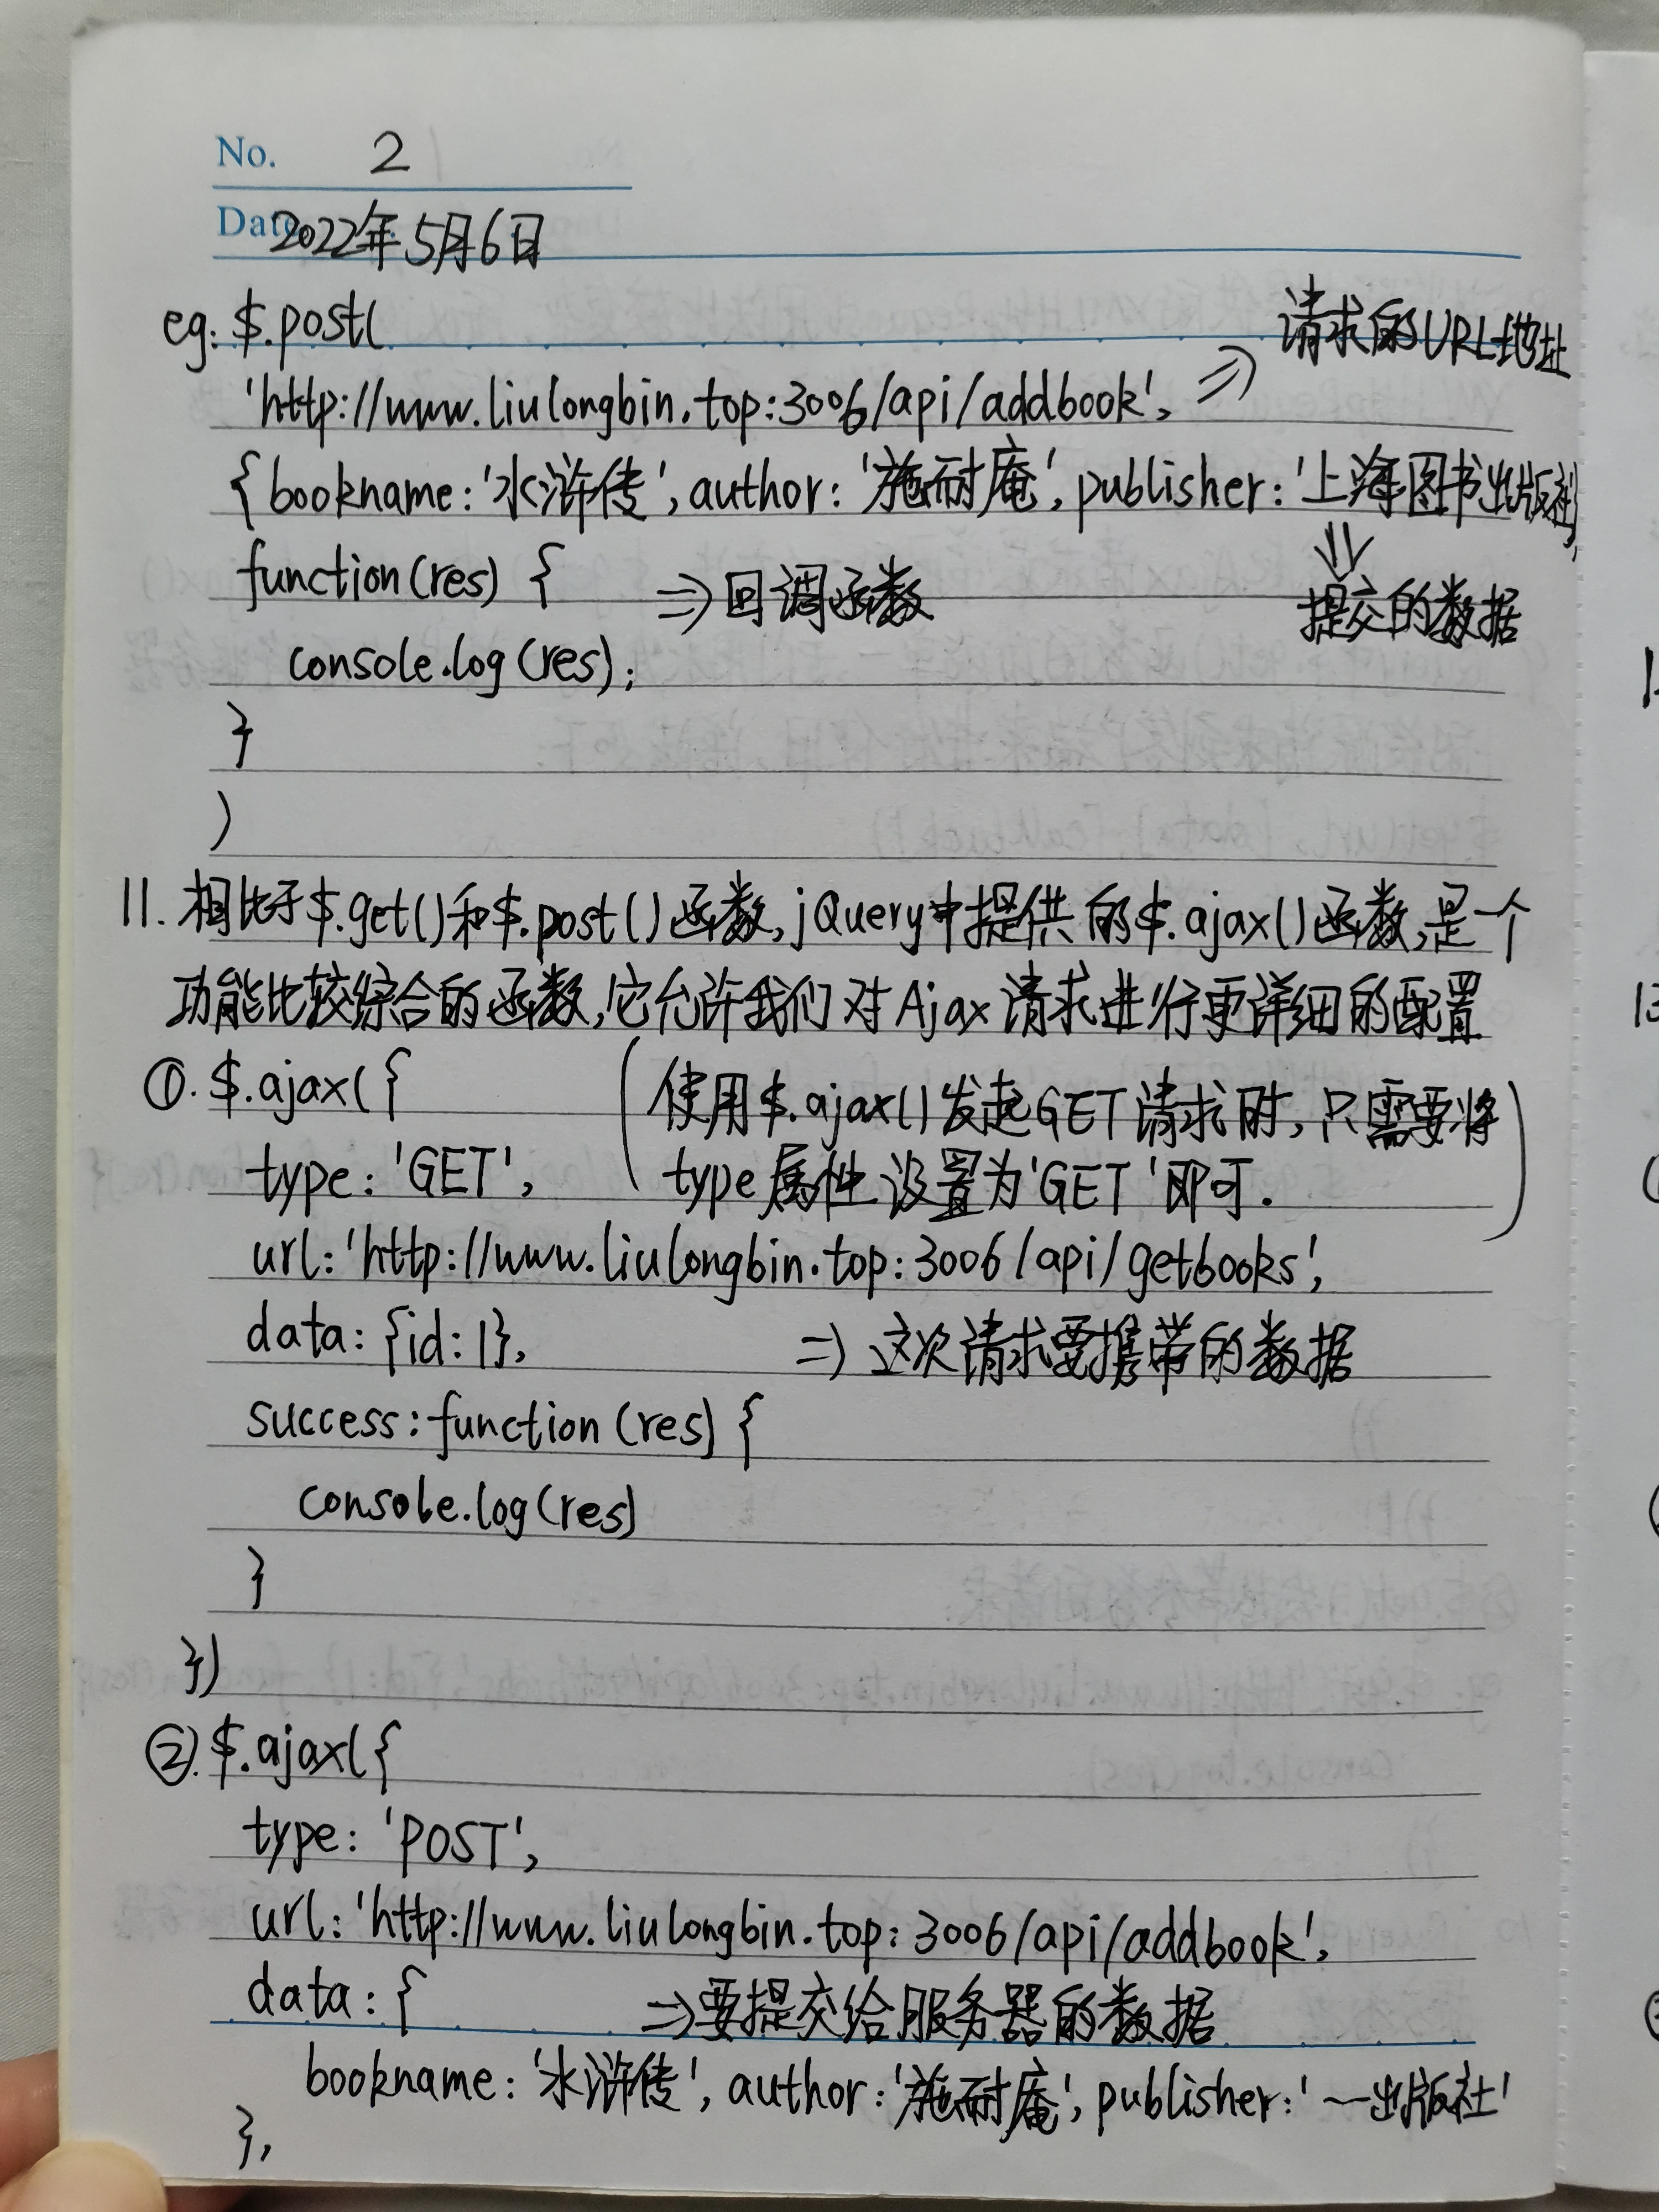 No. 2
Date 2022年5月6日
eg: $.post(
'http://www.liulongbin.top:3006/api/addbook', => 请求的URL地址
{bookname:'水浒传',author:'施耐庵',publisher:'上海图书出版社'},
function(res) { => 回调函数
⇓ 提交的数据
console.log(res);
}
)
11. 相比于$.get()和$.post()函数,jQuery中提供的$.ajax()函数,是一个
功能比较综合的函数,它允许我们对Ajax请求进行更详细的配置
①. $.ajax({ (使用$.ajax()发起GET请求时,只需要将
type: 'GET', type属性设置为'GET'即可.)
url:'http://www.liulongbin.top:3006/api/getbooks',
data: {id:1}, => 这次请求要携带的数据
success:function(res) {
console.log(res)
}
})
②. $.ajax({
type: 'POST',
url:'http://www.liulongbin.top:3006/api/addbook',
data: { =>要提交给服务器的数据
bookname:'水浒传',author:'施耐庵',publisher:'~出版社'
},